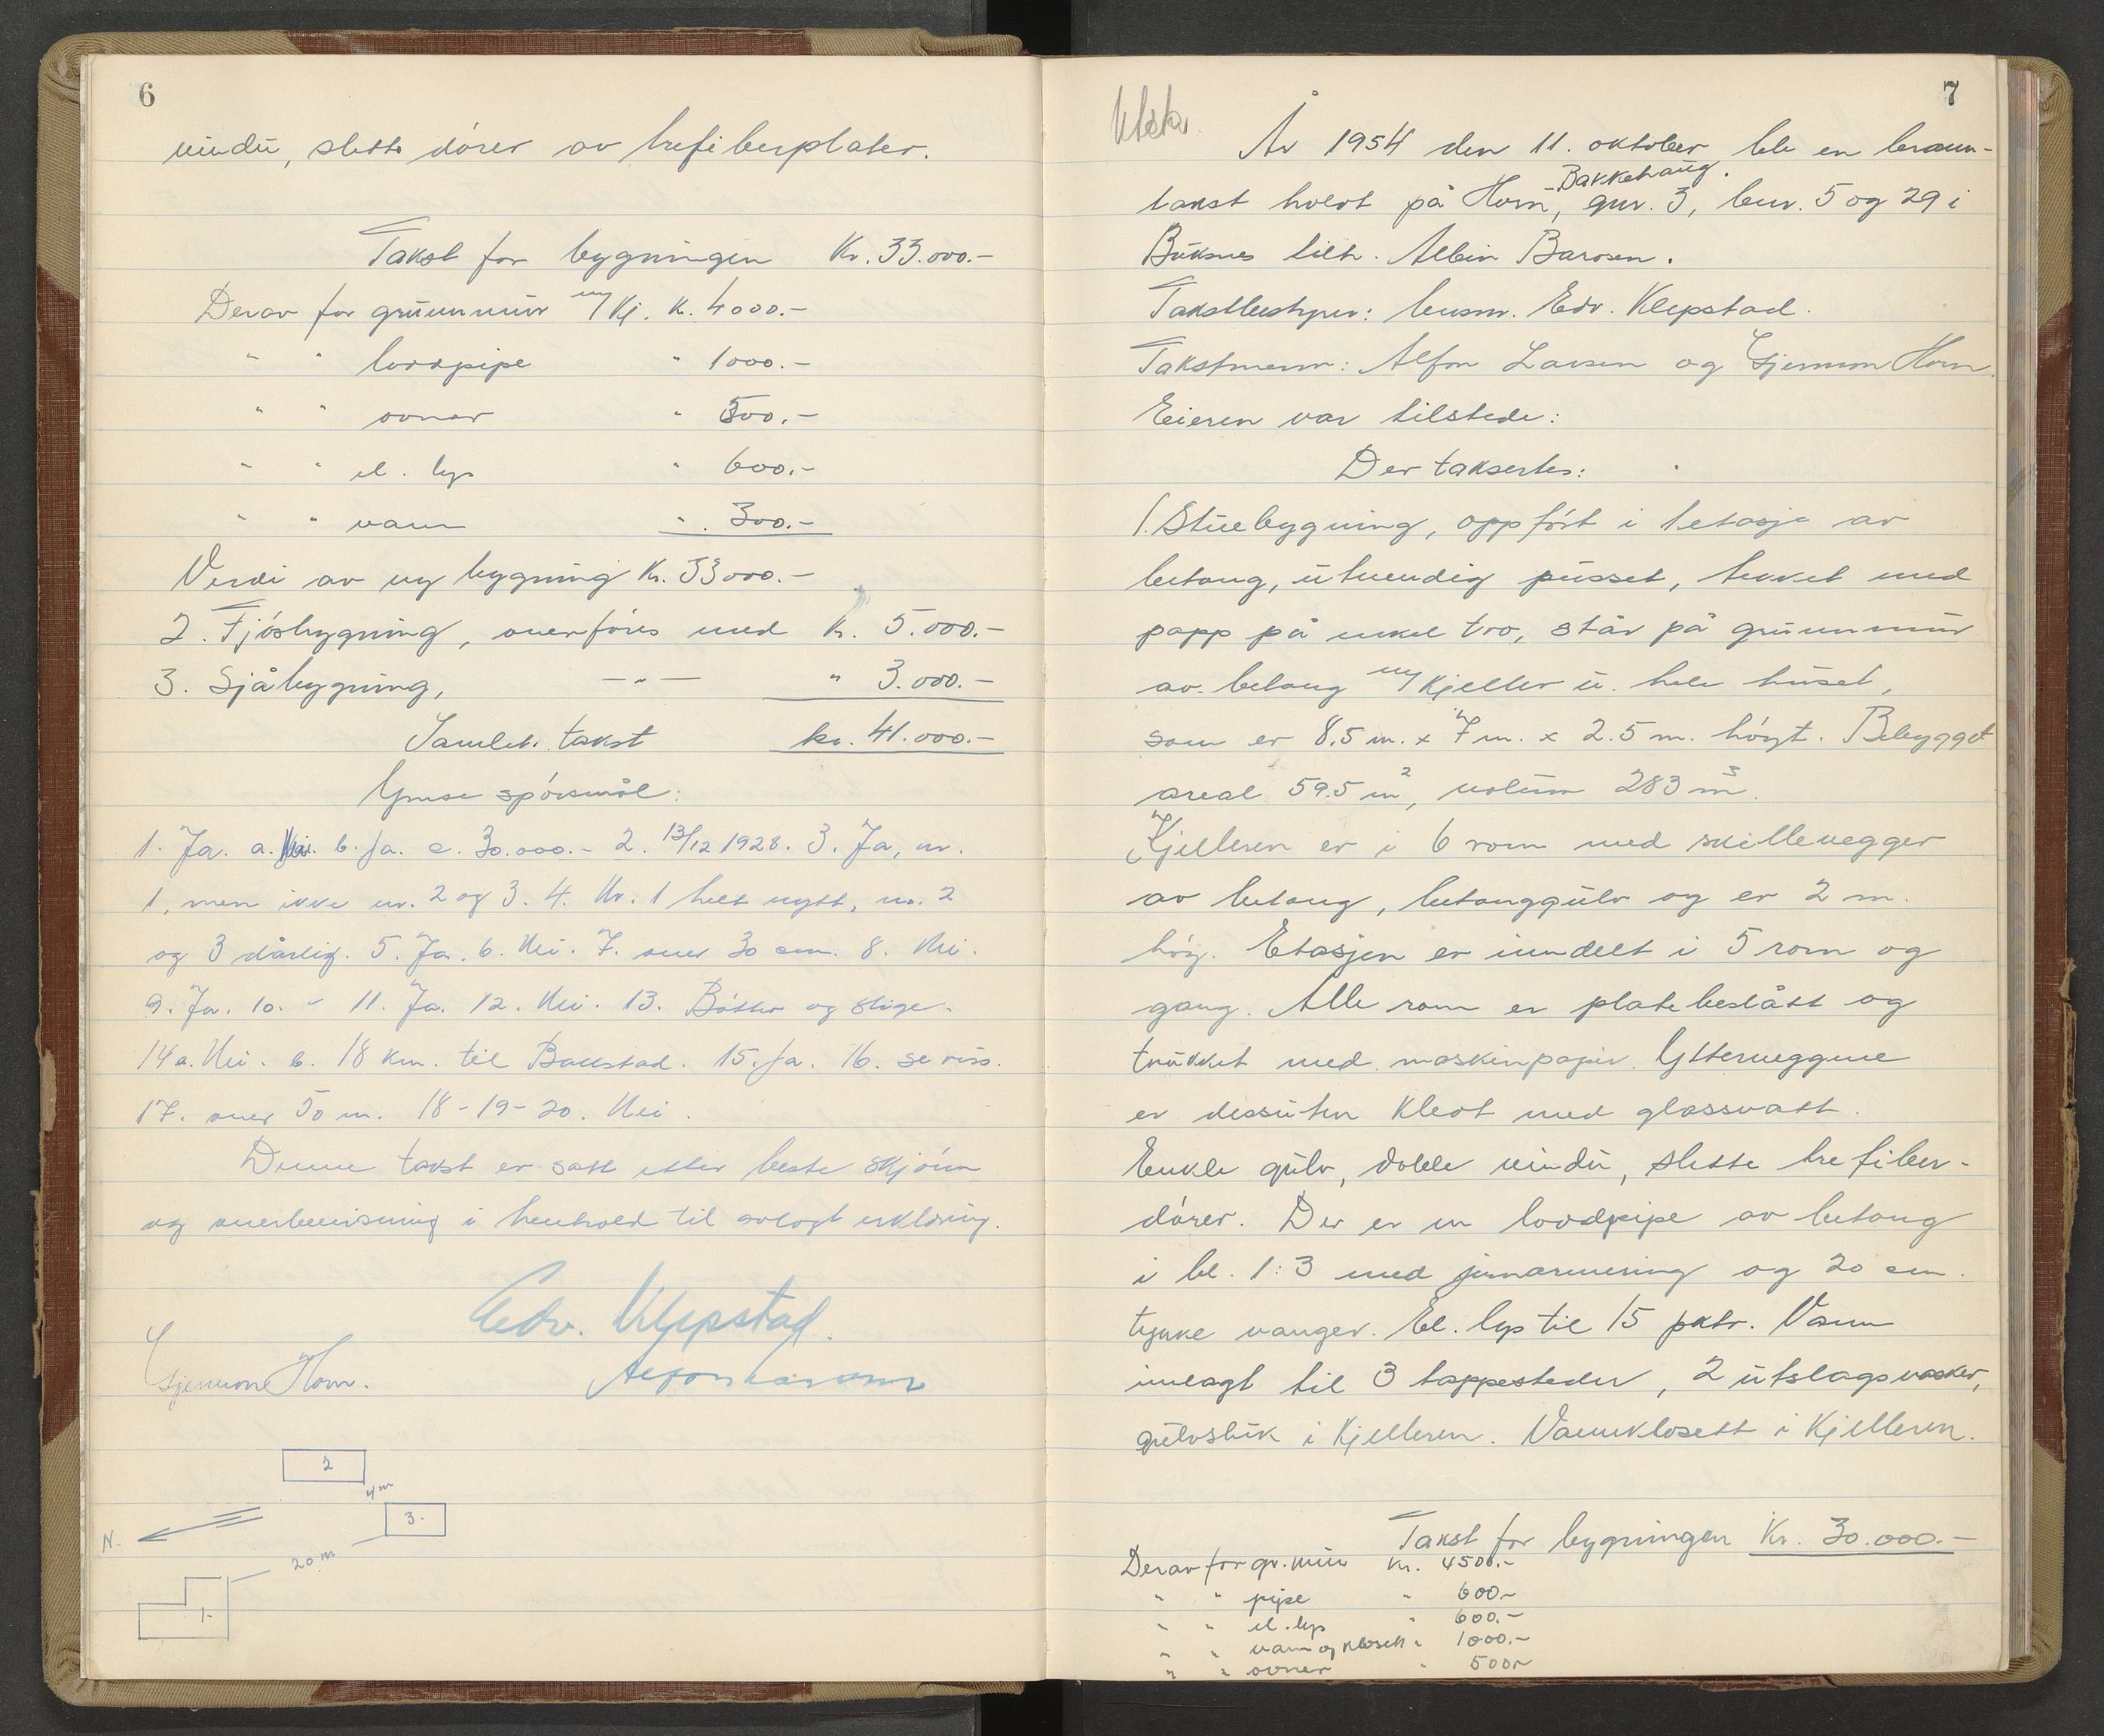 6
vindu, slette dører av trefiberplater.
Takst for bygningen Kr. 33.000.-
Derav for grunnmur m/kj. K. 4000.-
" " loddpipe " 1000.-
" " ovner " 500.-
" " el. lys " 600.-
" " vann " 300.-
Verdi av ny bygning Kr. 33000.-
2. Fjósbygning, overføres med Kr. 5.000.-
3. Sjåbygning, -"- " 3.000.-
Samlet takst kr. 41.000.-
Ymse spórsmål:
1. Ja. a. Nei. b. Ja. c. 30.000.- 2. 13/12 1928. 3. Ja, nr.
1, men ikke nr. 2 og 3. 4. Nr. 1 helt nytt, nr. 2
og 3 dårlig. 5. Ja. 6. Nei. 7. over 30 cm. 8. Nei.
9. Ja. 10. " 11. Ja. 12. Nei. 13. Bótter og stige.
14a. Nei. b. 18 km. til Ballstad. 15. Ja. 16. se riss.
17. over 50 m. 18-19-20. Nei.
Denne takst er satt etter beste skjónn
og overbevisning i henhold til avlagt erklæring.
Edv. Klepstad.
Gjermon Horn. Alfon Larsen
2
4 m
3.
N.
20 m
1.
7
År 1954 den 11. oktober ble en brann-
Bakkehaug.
takst holdt på Horn, gnr. 3, bnr. 5 og 29 i
Buksnes tilh. Albin Barosen.
Takstbestyrer: busm. Edv. Klepstad.
Takstmenn: Alfon Larsen og Gjermon Horn.
Eieren var tilstede:
Der taksertes:
1. Stuebygning, oppfórt i 1 etasje av
betong, utvendig pusset, tekket med
papp på enkel tro, står på grunnmur
av betong m/kjeller u. hele huset,
som er 8.5 m. x 7 m. x 2.5 m. hóyt. Bebygget
areal 59.5 m2, volum 283 m3.
Kjelleren er i 6 rom med skillevegger
av betong, betonggulv og er 2 m.
hóy. Etasjen er inndelt i 5 rom og
gang. Alle rom er platebeslått og
trukket med maskinpapir. Ytterveggene
er dessuten kledt med glassvatt.
Enkle gulv, doble vindu, slette trefiber-
dórer. Der er en loddpipe av betong
i bl. 1:3 med jernarmering og 20 cm.
tykke vanger. El. lys til 15 pktr. Vann
innlagt til 3 tappesteder, 2 utslagsvasker,
gulvsluk i kjelleren. Vannklosett i kjelleren.
Takst for bygningen Kr. 30.000.-
Derav for gr. mur Kr. 4500.-
" " pipe " 600.-
" " el. lys " 600.-
" " vann og klosett " 1000.-
" " ovner " 500.-